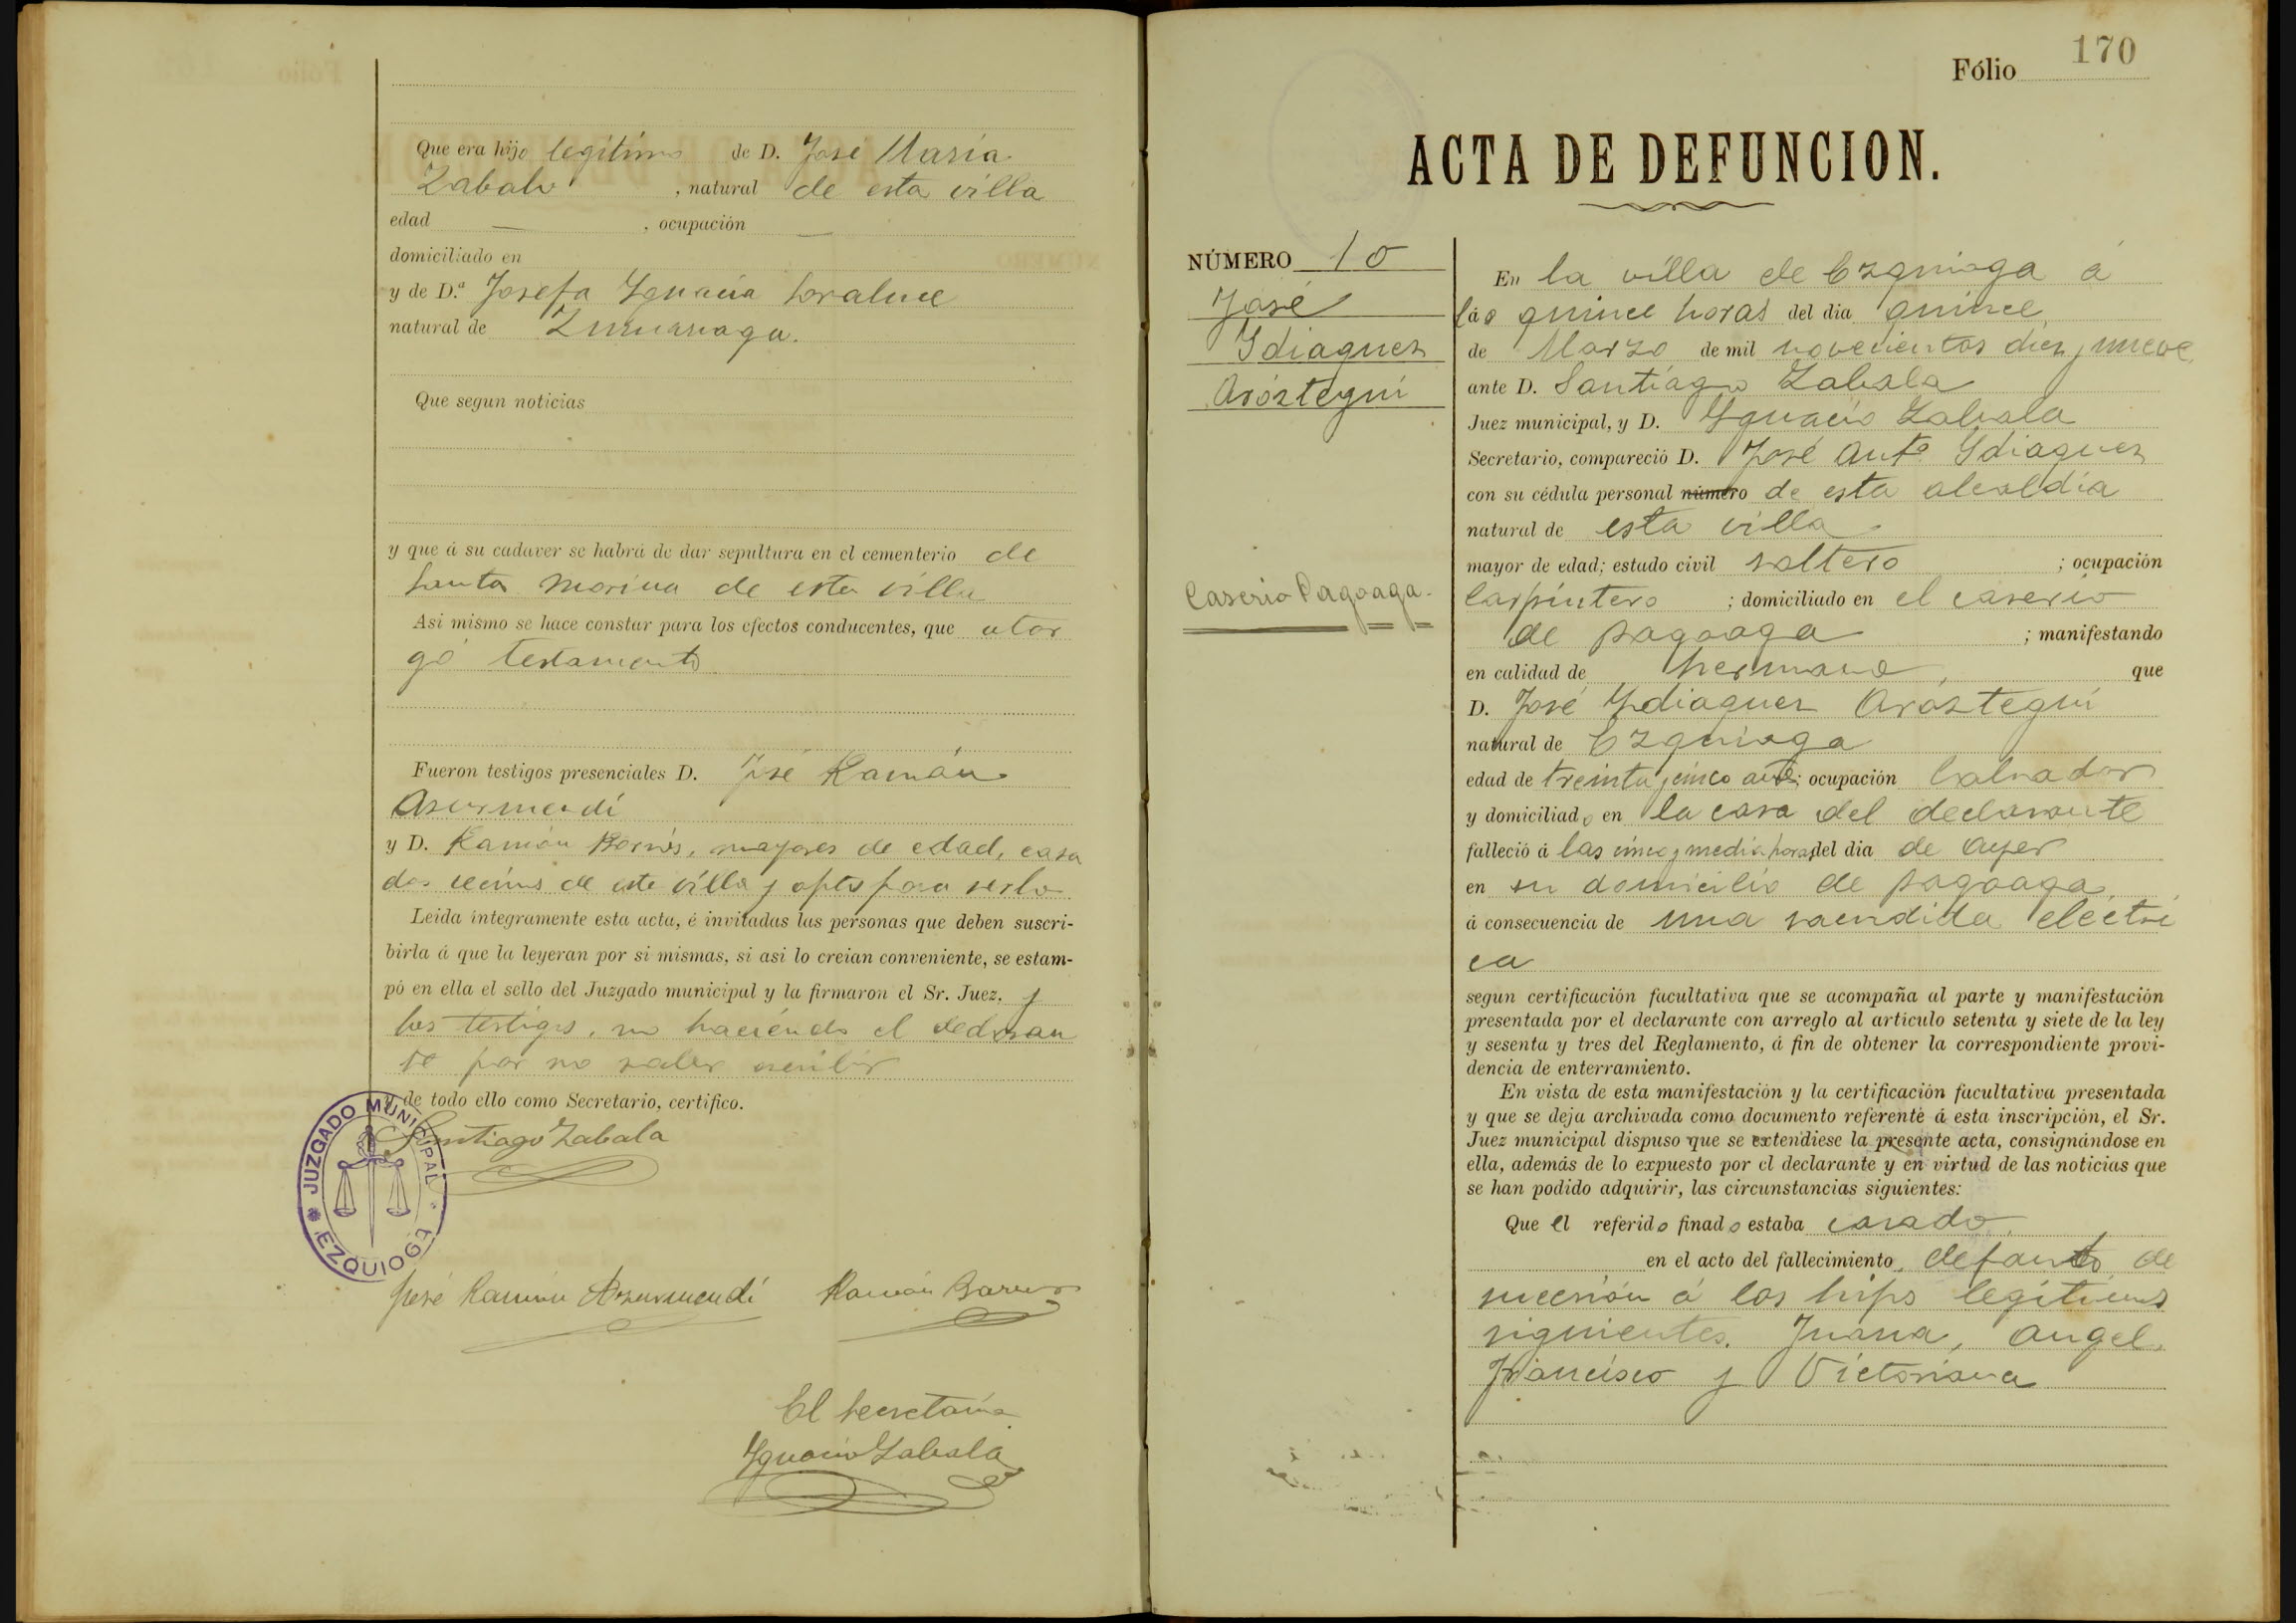 Que era hijo legítimo de D. José María
Zabala, natural de esta villa
edad — , ocupación —
domiciliado en
y de D.ª Josefa Ygnacia Loralure
natural de Zumarraga.
Que segun noticias
y que á su cadaver se habrá de dar sepultura en el cementerio de
Santa Marina de esta villa
Asi mismo se hace constar para los efectos conducentes, que otor
gó testamento
Fueron testigos presenciales D. José Ramón
Asurmendi
y D. Ramón Barns, mayores de edad, casa
dos vecinos de esta villa y aptos para serlo
Leida integramente esta acta, é invitadas las personas que deben suscri-
birla á que la leyeran por si mismas, si asi lo creian conveniente, se estam-
pó en ella el sello del Juzgado municipal y la firmaron el Sr. Juez, y
los testigos, no haciendo el declaran
te por no saber escribir
y de todo ello como Secretario, certifico.
JUZGADO MUNICIPAL
EZQUIOGA
Santiago Zabala
José Ramón Asurmendi Ramón
El Secretario
Ygnacio Zabala
Fólio 170
ACTA DE DEFUNCION.
NÚMERO 10
José
Ydiaquez
Aróztegui
Caserio Pagoaga.
En la villa de Ezquioga á
las quince horas del dia quince
de Marzo de mil novecientos diez y nueve
ante D. Santiago Zabala
Juez municipal, y D. Ygnacio Zabala
Secretario, compareció D. José Antº Ydiaquez
con su cédula personal número de esta alcaldía
natural de esta villa
mayor de edad; estado civil soltero ; ocupación
Carpintero ; domiciliado en el caserio
de Pagoaga ; manifestando
en calidad de hermano, que
D. José Ydiaquez Aróztegui
natural de Ezquioga
edad de treinta y cinco años; ocupación Labrador
y domiciliado en la casa del declarante
falleció á las cinco y media horas del dia de ayer
en su domicilio de Pagoaga,
á consecuencia de una sacudida eléctri
ca
segun certificación facultativa que se acompaña al parte y manifestación
presentada por el declarante con arreglo al articulo setenta y siete de la ley
y sesenta y tres del Reglamento, á fin de obtener la correspondiente provi-
dencia de enterramiento.
En vista de esta manifestación y la certificación facultativa presentada
y que se deja archivada como documento referente á esta inscripción, el Sr.
Juez municipal dispuso que se extendiese la presente acta, consignándose en
ella, además de lo expuesto por el declarante y en virtud de las noticias que
se han podido adquirir, las circunstancias siguientes:
Que el referido finado estaba casado
en el acto del fallecimiento, dejando de
sucesión á los hijos legitimos
siguientes. Juana, Angel,
Francisco y Victoriana